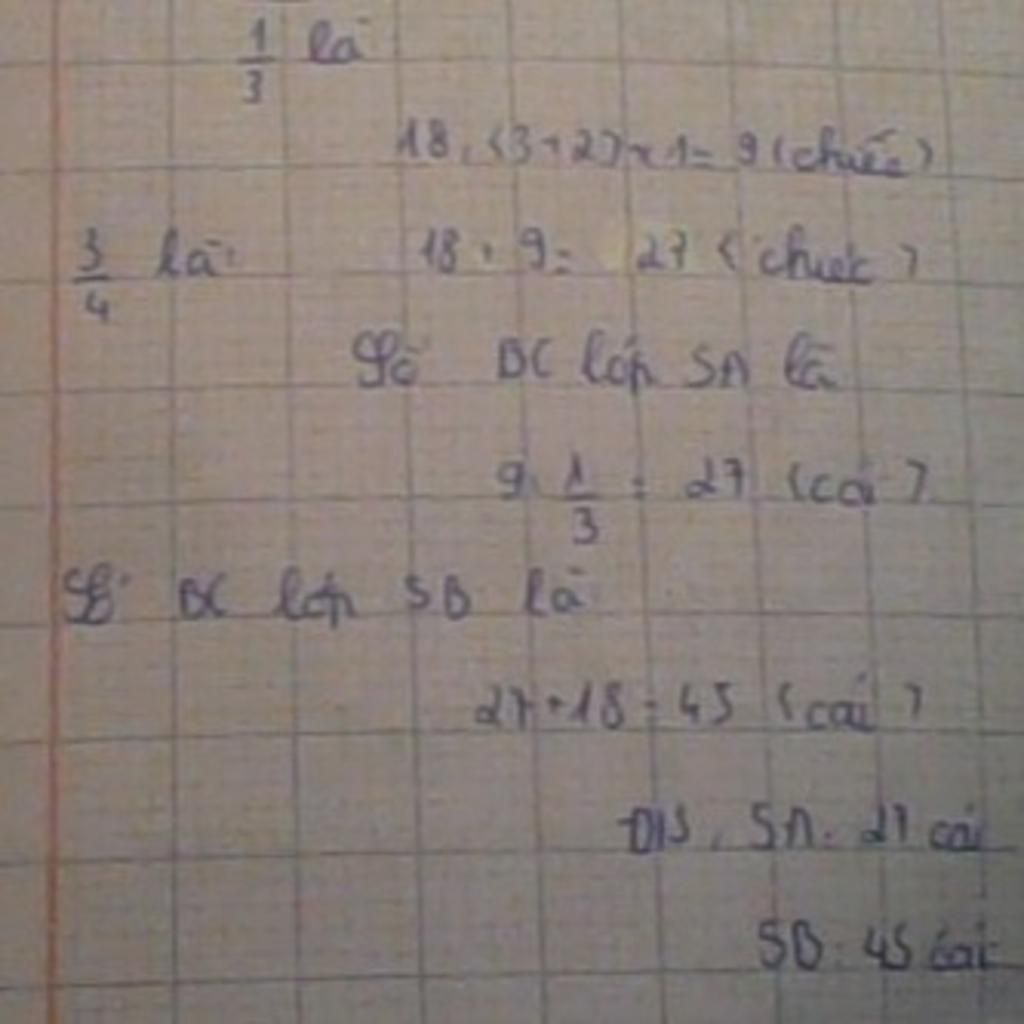 1/3 là
18 : (3 + 2) x 1 = 9 (chiếc)
3/4 là: 18 + 9 = 27 (chiếc)
Số BC lớp 5A là
9 : 1/3 = 27 (cái)
Số BC lớp 5B là
27 + 18 = 45 (cái)
Đ/S: 5A: 27 cái
5B: 45 cái